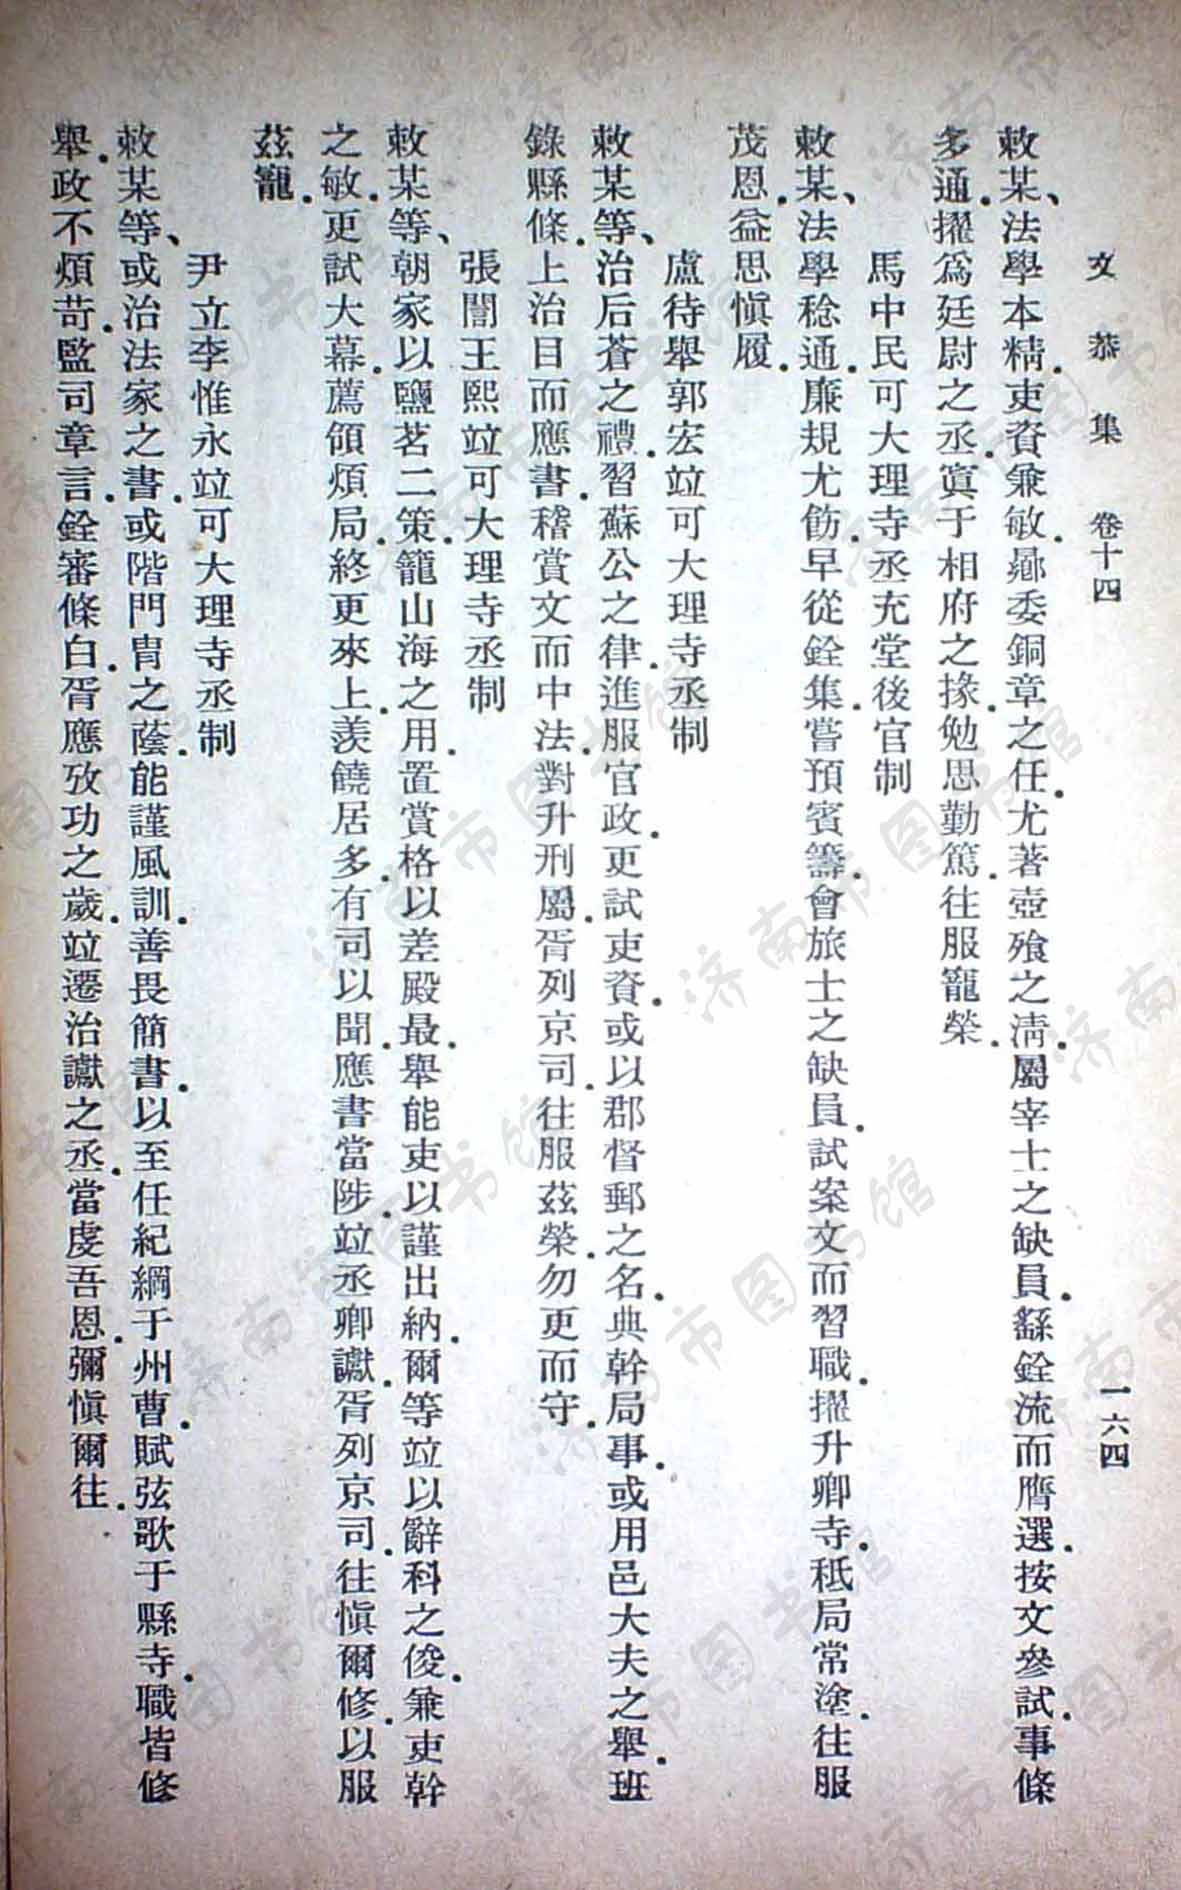 文恭集 卷十四 一六四
敕某、法學本精.吏資兼敏.曏委銅章之任.尤著壺飧之淸.屬宰士之缺員.繇銓流而膺選.按文參試.事條
多通.擢爲廷尉之丞.寘于相府之掾.勉思勤篤.往服寵榮.
馬中民可大理寺丞充堂後官制
敕某、法學稔通.廉規尤飭.早從銓集.嘗預賓籌.會旅士之缺員.試案文而習職.擢升卿寺.秪局常塗.往服
茂恩.益思愼履.
盧待舉郭宏竝可大理寺丞制
敕某等、治后蒼之禮.習蘇公之律.進服官政.更試吏資.或以郡督郵之名.典幹局事.或用邑大夫之舉.班
錄縣條.上治目而應書.稽賞文而中法.對升刑屬.胥列京司.往服茲榮.勿更而守.
張誾王熙竝可大理寺丞制
敕某等、朝家以鹽茗二策.籠山海之用.置賞格以差殿最.舉能吏以謹出納.爾等竝以辭科之俊.兼吏幹
之敏.更試大幕.薦領煩局.終更來上.羨饒居多.有司以聞.應書當陟.竝丞卿讞.胥列京司.往愼爾修.以服
茲寵.
尹立李惟永竝可大理寺丞制
敕某等、或治法家之書.或階門胄之蔭.能謹風訓.善畏簡書.以至任紀綱于州曹.賦弦歌于縣寺.職皆修
舉.政不煩苛.監司章言.銓審條白.胥應攷功之歲.竝遷治讞之丞.當虔吾恩.彌愼爾往.
济南市图书馆